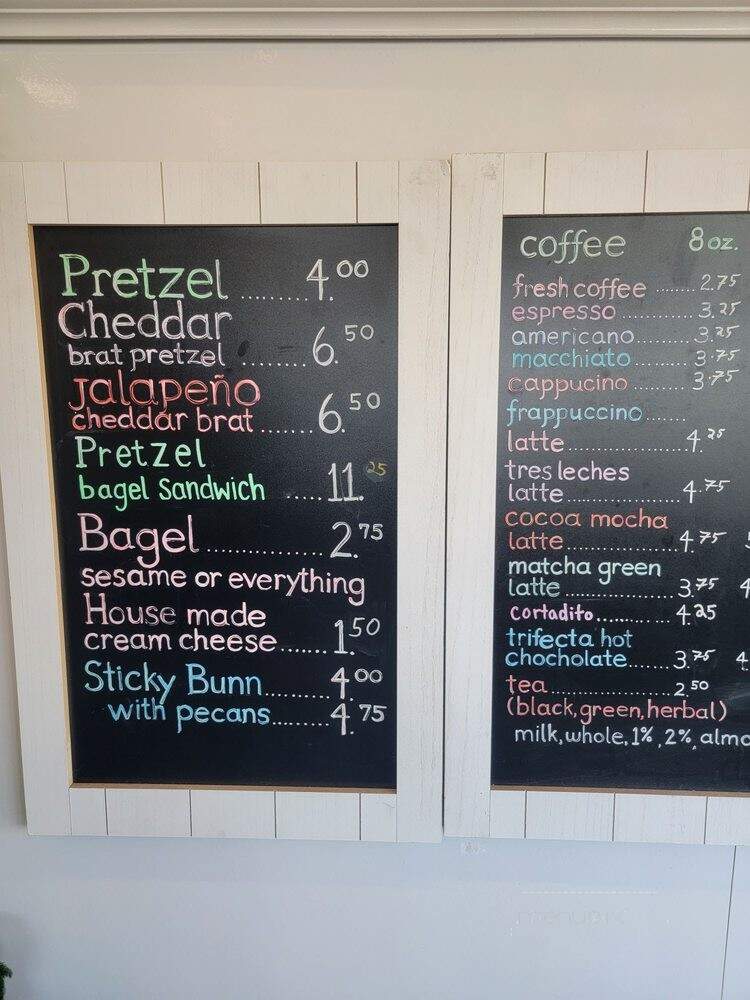 Pretzel ....... 4.00
Cheddar
brat pretzel ........ 6.50
Jalapeño
cheddar brat ...... 6.50
Pretzel
bagel Sandwich ..... 11.25
Bagel ............... 2.75
sesame or everything
House made
cream cheese ....... 1.50
Sticky Bunn ......... 4.00
with pecans ....... 4.75
coffee 8 oz.
fresh coffee ...... 2.75
espresso ............ 3.25
americano ......... 3.25
macchiato ........ 3.75
cappucino ......... 3.75
frappuccino ......
latte ................. 4.25
tres leches
latte .................. 4.75
cocoa mocha
latte .................. 4.75
matcha green
latte .................. 3.75 4
cortadito ........... 4.25
trifecta hot
chocholate ....... 3.75 4.
tea .................. 2.50
(black, green, herbal)
milk, whole, 1%, 2%, almo